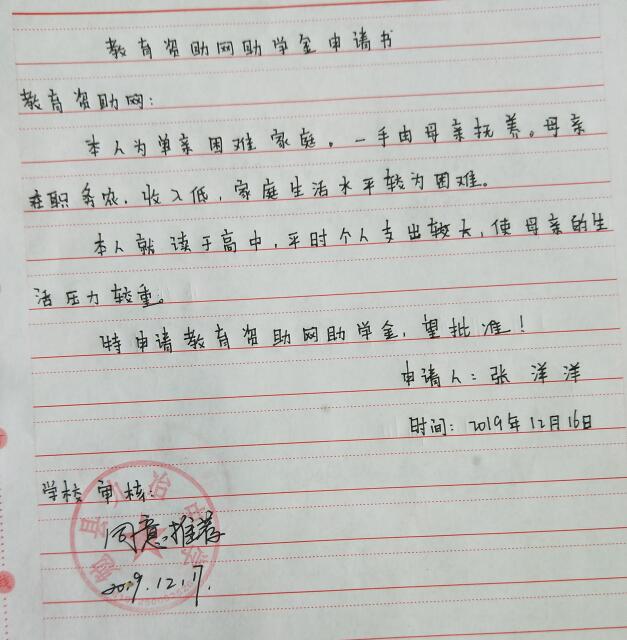 教育资助网助学金申请书
教育资助网：
本人为单亲困难家庭。一手由母亲抚养。母亲
在职务农，收入低，家庭生活水平较为困难。
本人就读于高中，平时个人支出较大，使母亲的生
活压力较重。
特申请教育资助网助学金，望批准！
申请人：张洋洋
时间：2019年12月16日
学校审核：
同意推荐
2019.12.17.